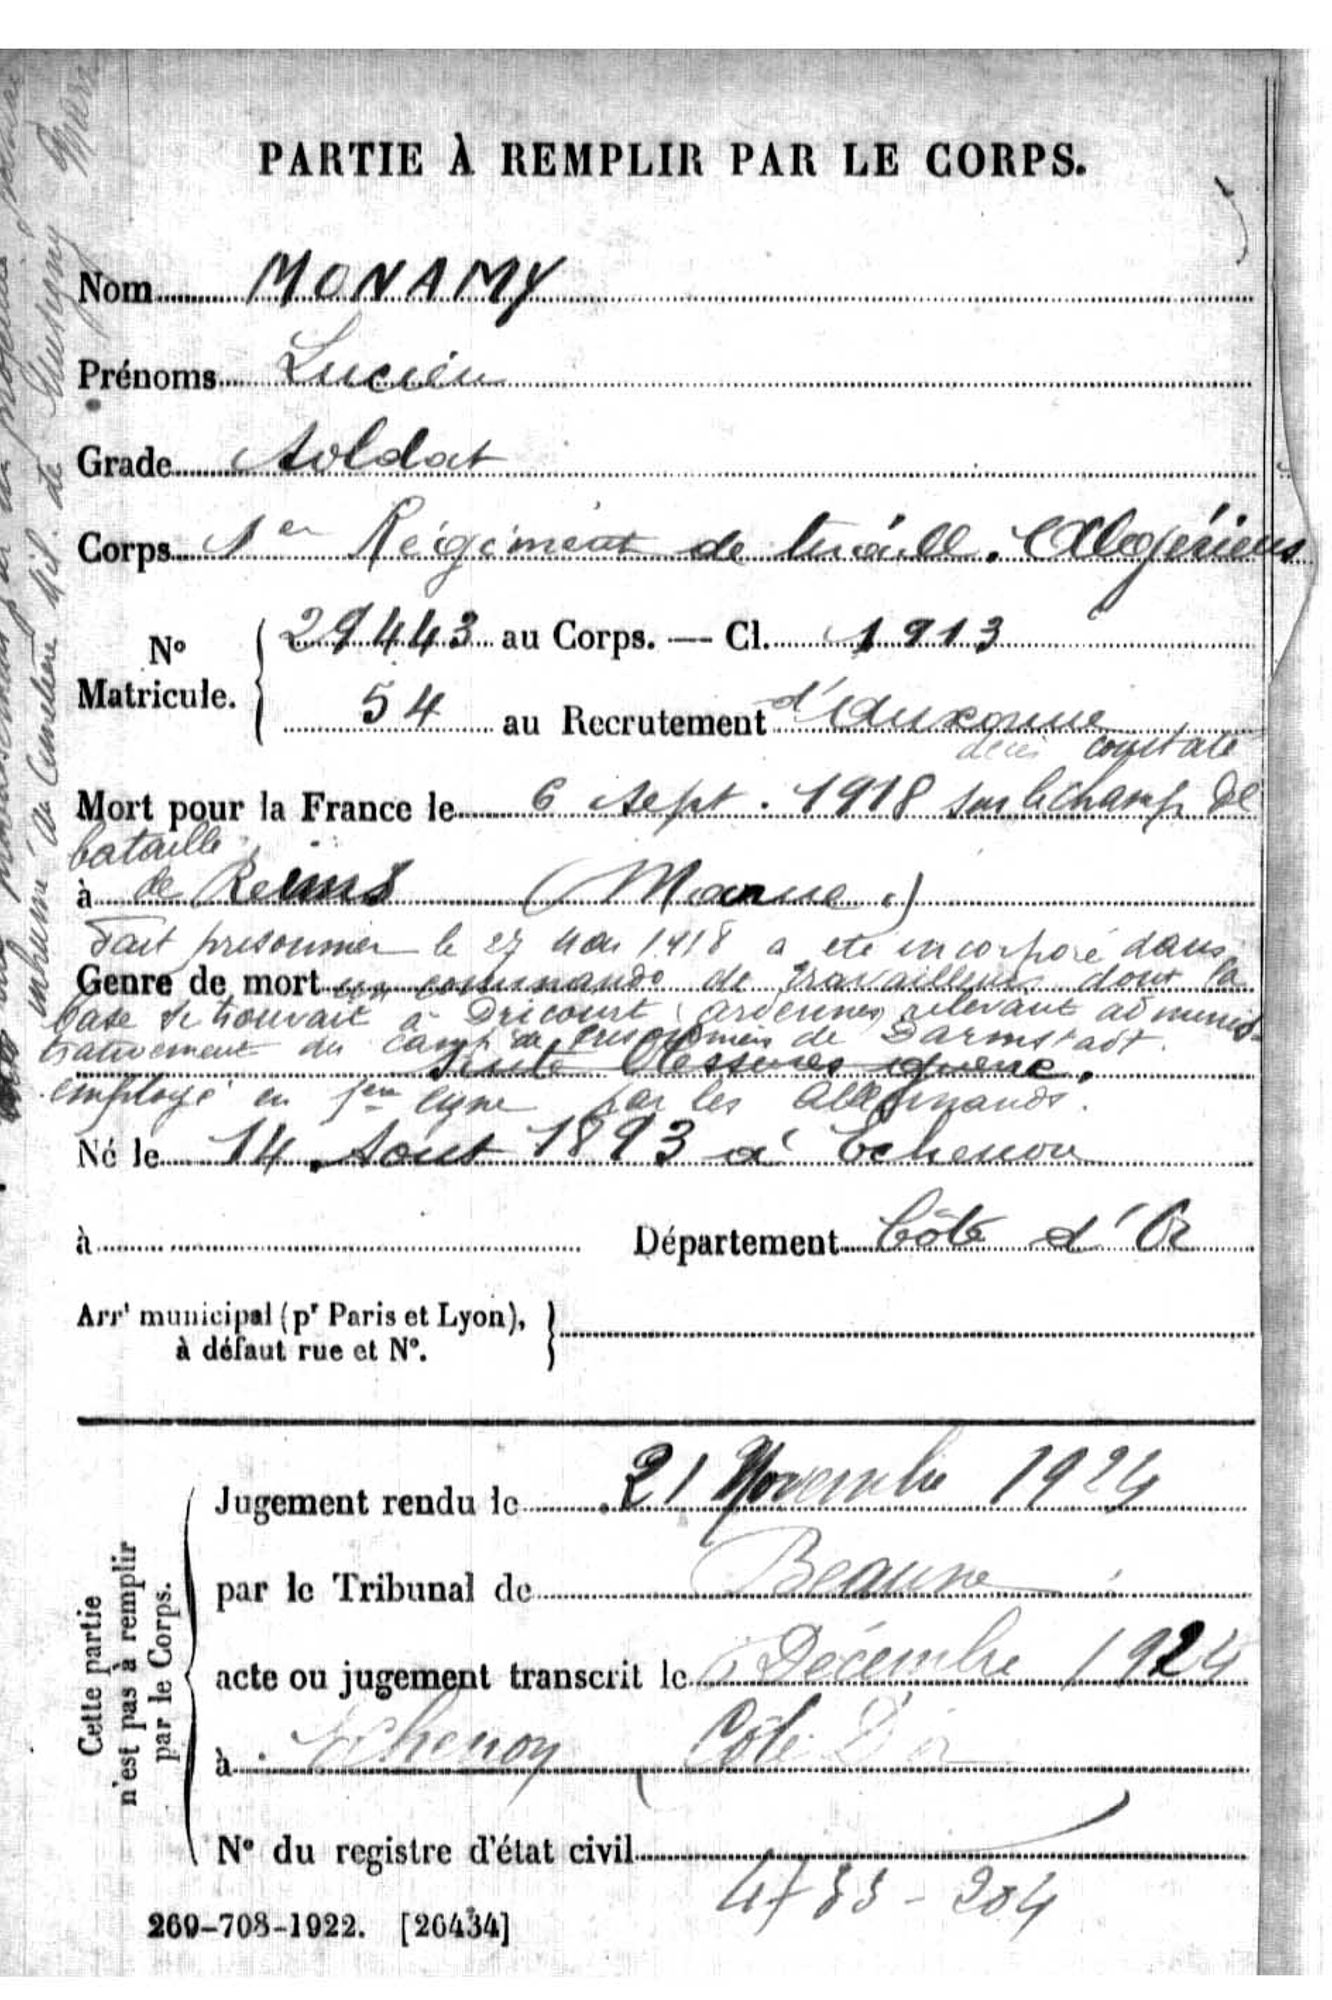 PARTIE À REMPLIR PAR LE CORPS.
Nom MONAMY
Prénoms Lucien
Grade Soldat
Corps 1er Régiment de tiraill. Algériens
N° Matricule. { 29443 au Corps. — Cl. 1913
54 au Recrutement d'Auxonne
décès constaté
Mort pour la France le 6 sept. 1918 sur le champ de
bataille
à de Reims (Marne.)
Fait prisonnier le 27 Mai 1918 a ete incorporé dans
Genre de mort un commando de travailleurs dont la
base se trouvait à Dricourt (ardennes) relevant adminis-
trativement du camp de prisonniers de Darmstadt.
Suite blessures guerre.
employé en 1ere ligne par les allemands.
Né le 14 Aout 1893 à Echenon
à Département Côte d'Or
Arrt municipal (pr Paris et Lyon),
à défaut rue et N°.
Jugement rendu le 21 Novembre 1924
par le Tribunal de Beaune
acte ou jugement transcrit le Décembre 1924
à Echenon Côte D'or
N° du registre d'état civil
4733-204
Cette partie
n'est pas à remplir
par le Corps.
269-708-1922. [26434]
inhumé au Cimetière Mil. de